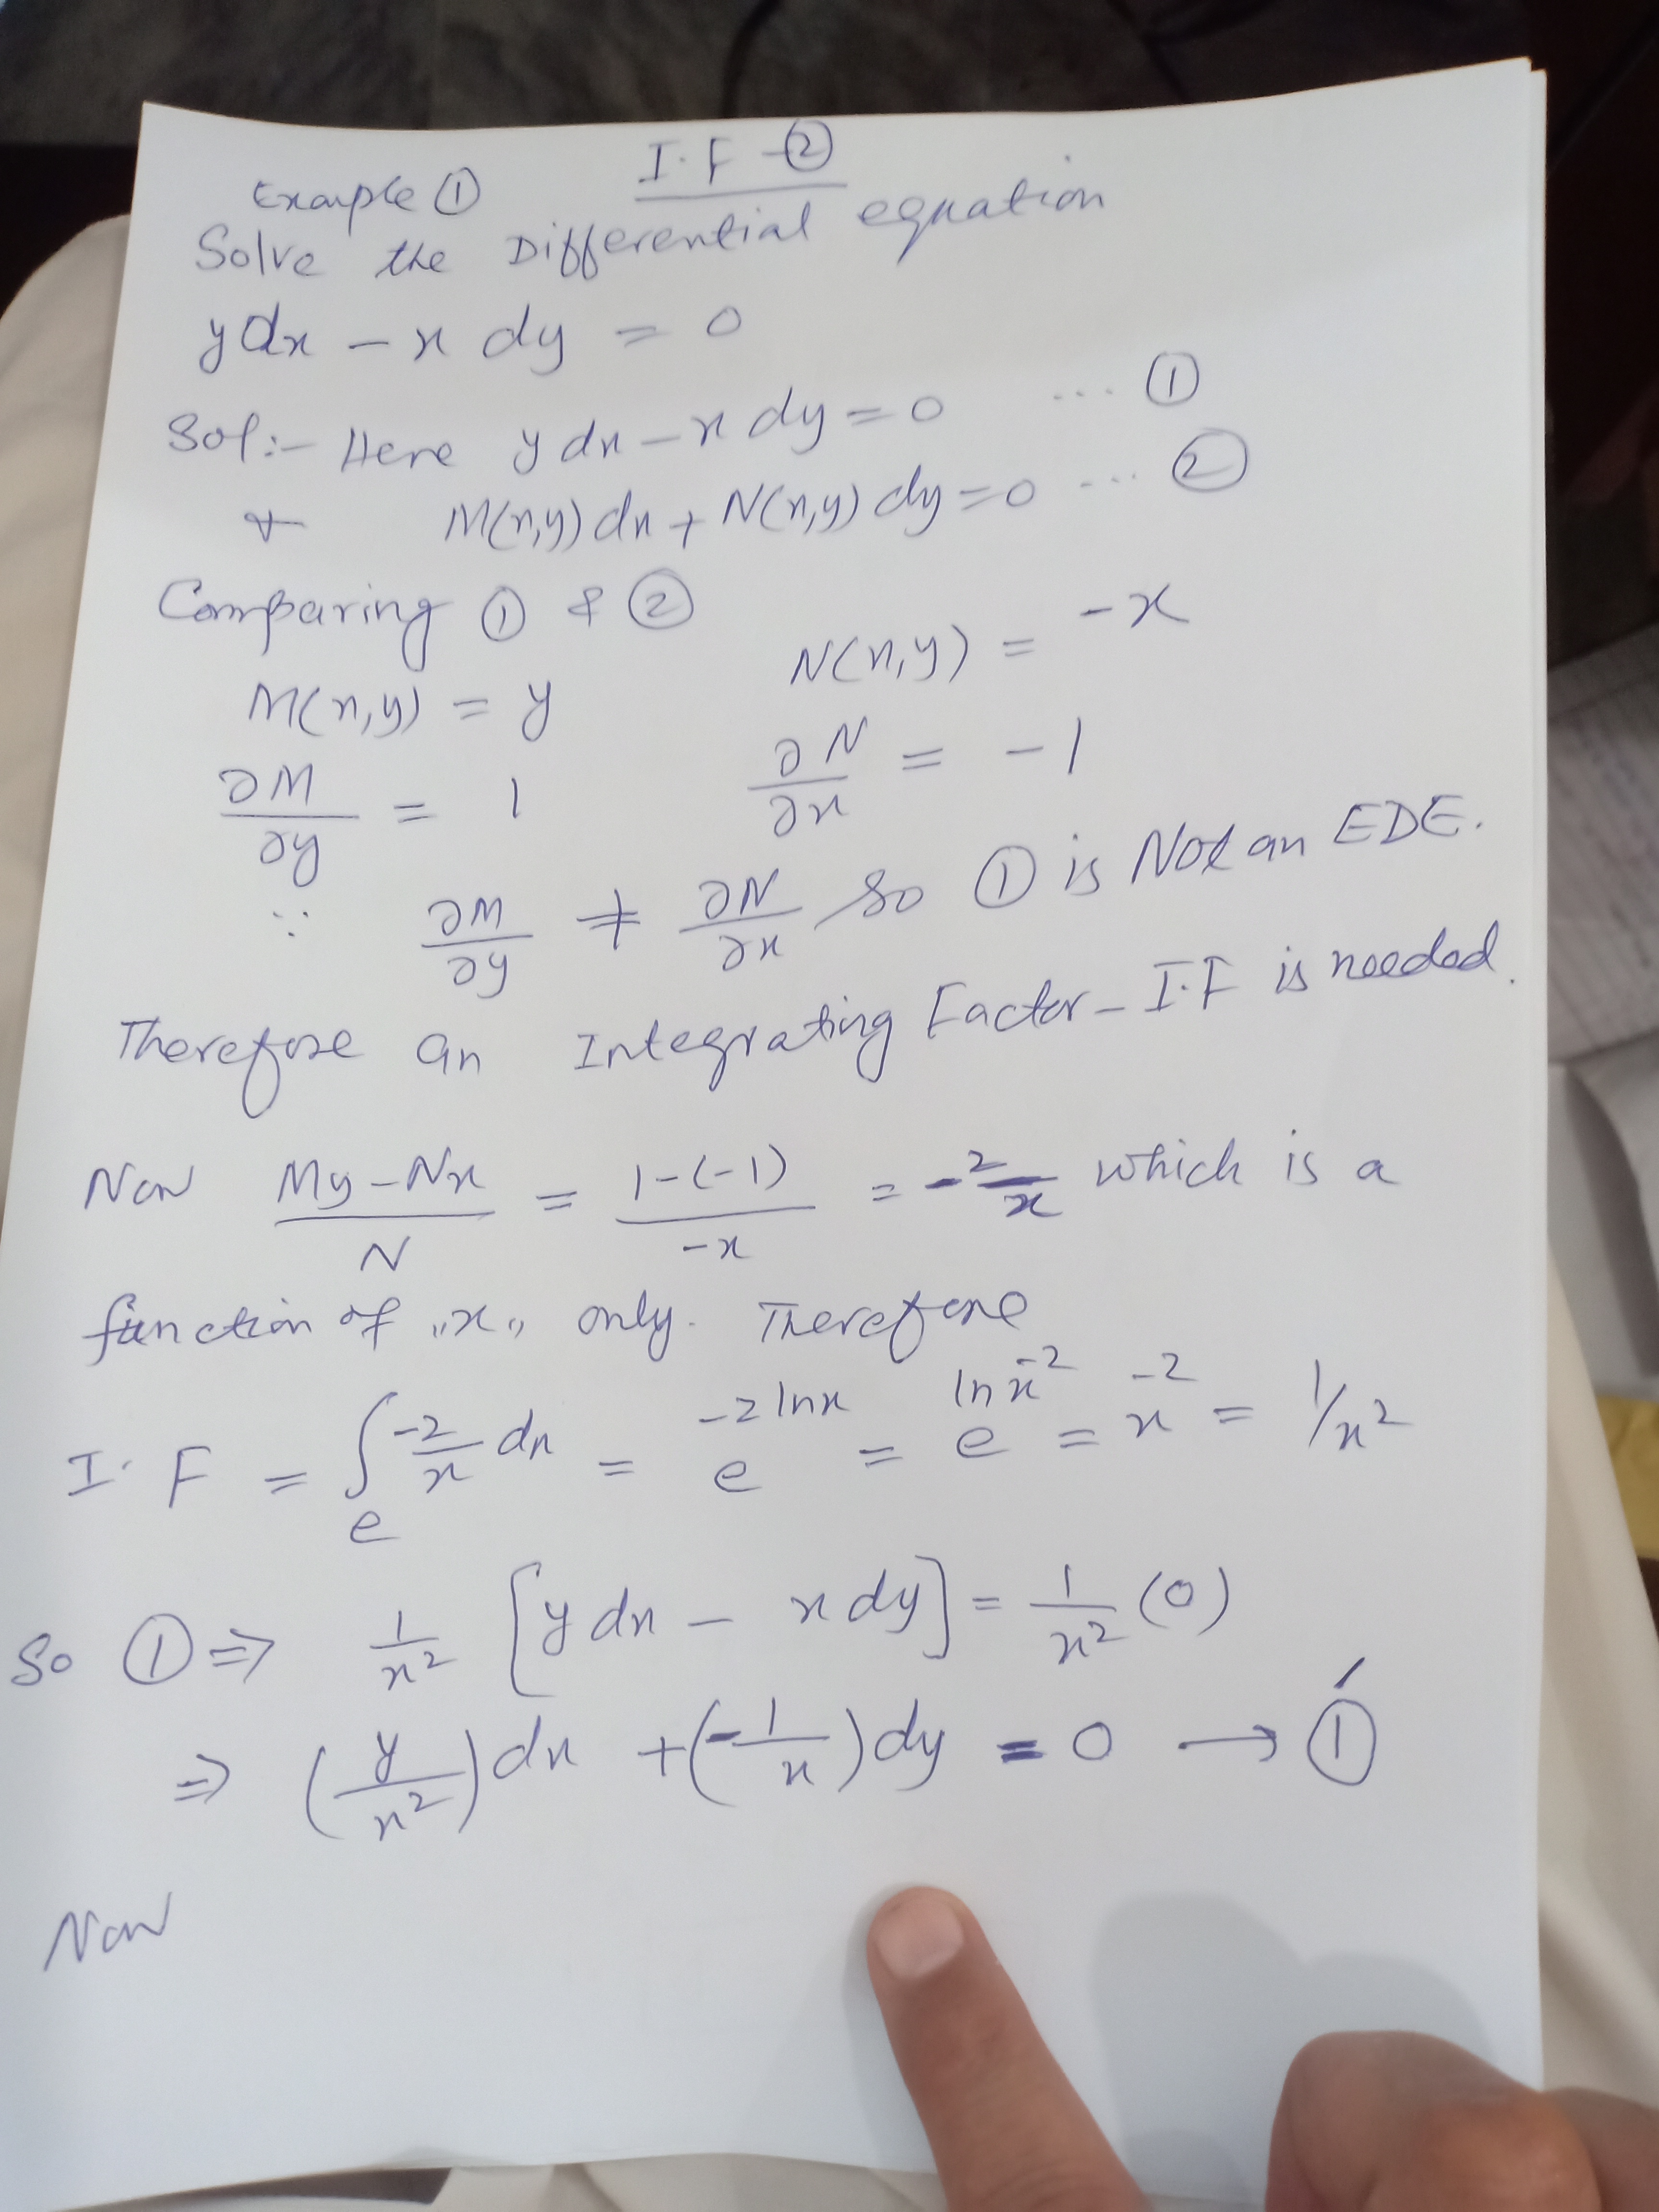 I.F -②
Example ①
Solve the Differential equation
ydx - x dy = 0
Sol:- Here y dx - x dy = 0 ... ①
& M(x,y) dx + N(x,y) dy = 0 ... ②
Comparing ① & ②
M(x,y) = y N(x,y) = -x
∂M/∂y = 1 ∂N/∂x = -1
∵ ∂M/∂y ≠ ∂N/∂x So ① is Not an EDE.
Therefore an Integrating Factor - I.F is needed.
Now (My - Nx)/N = (1-(-1))/-x = -2/x which is a
function of "x" only. Therefore
I.F = e^∫-2/x dx = e^-2 lnx = e^ln x^-2 = x^-2 = 1/x²
So ① ⇒ 1/x² [y dx - x dy] = 1/x² (0)
⇒ (y/x²) dx + (-1/x) dy = 0 → ①′
Now